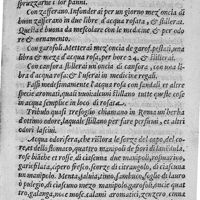 spruzzarne i lor panni.
Con zafferano. Infonder à per un giorno mez'oncia di
buon zafferano in due libre d'acqua rosata, & stillerai.
Questa è buona da mescolare con le medicine, & per odo
re & ornamento.
Con garofoli. Metter ai mez'oncia de garof. pesti in una
libra & meza d'acqua rosa, per hore 24. & stillerai.
Con canfora stillerai un'oncia di canfora, con una li-
bra d'acqua rosa: & l'userai in medicine regali.
Fassi medesimamente l'acqua rosata con sandali, & altri
aromati, quai nondimeno stillano tutte queste co-
se in acqua semplice in loco di rosata.
Tribulo quasi tresoglio chiamano in Roma un'herba
d'ottimo odore, laquale stillano per fare perfumi, & altri
odori lascivi.
Acqua odorifera, che ristora le forze del capo, del co-
re, & dello stomaco, quattro manipoli de fiori di lavandola,
rose bianche et rosse di ciascuna due manipoli, rosmarino,
cipero, ana
un manipolo. Menta, salvia, thimo, fogliette di lauro
ò polegio, di ciascuno mezo manipolo, garofoli, noce qua-
tro galanga, noci, calami aromatici, zenzero, enna